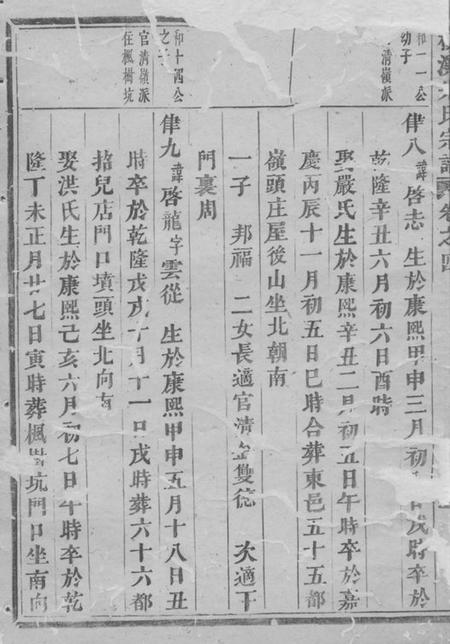 氏宗譜 卷之四
和一一公
幼子
清嶺派
侓八 諱啓志 生於康熙甲申三月初 日戌時卒於
乾隆辛丑六月初六日酉時
娶嚴氏生於康熙辛丑二月初五日午時卒於嘉
慶丙辰十一月初五日巳時合葬東邑五十五都
嶺頭庄屋後山坐北朝南
一子 邦福 二女長適官清 雙德 次適下
門裏周
和十四公
之子
官清嶺派
住楓樹坑
侓九 諱啓龍字雲從 生於康熙甲申五月十八日丑
時卒於乾隆戊戌十月十一日戌時葬六十六都
招兒店門口墳頭坐北向南
娶洪氏生於康熙己亥六月初七日午時卒於乾
隆丁未正月廿七日寅時葬楓樹坑門口坐南向